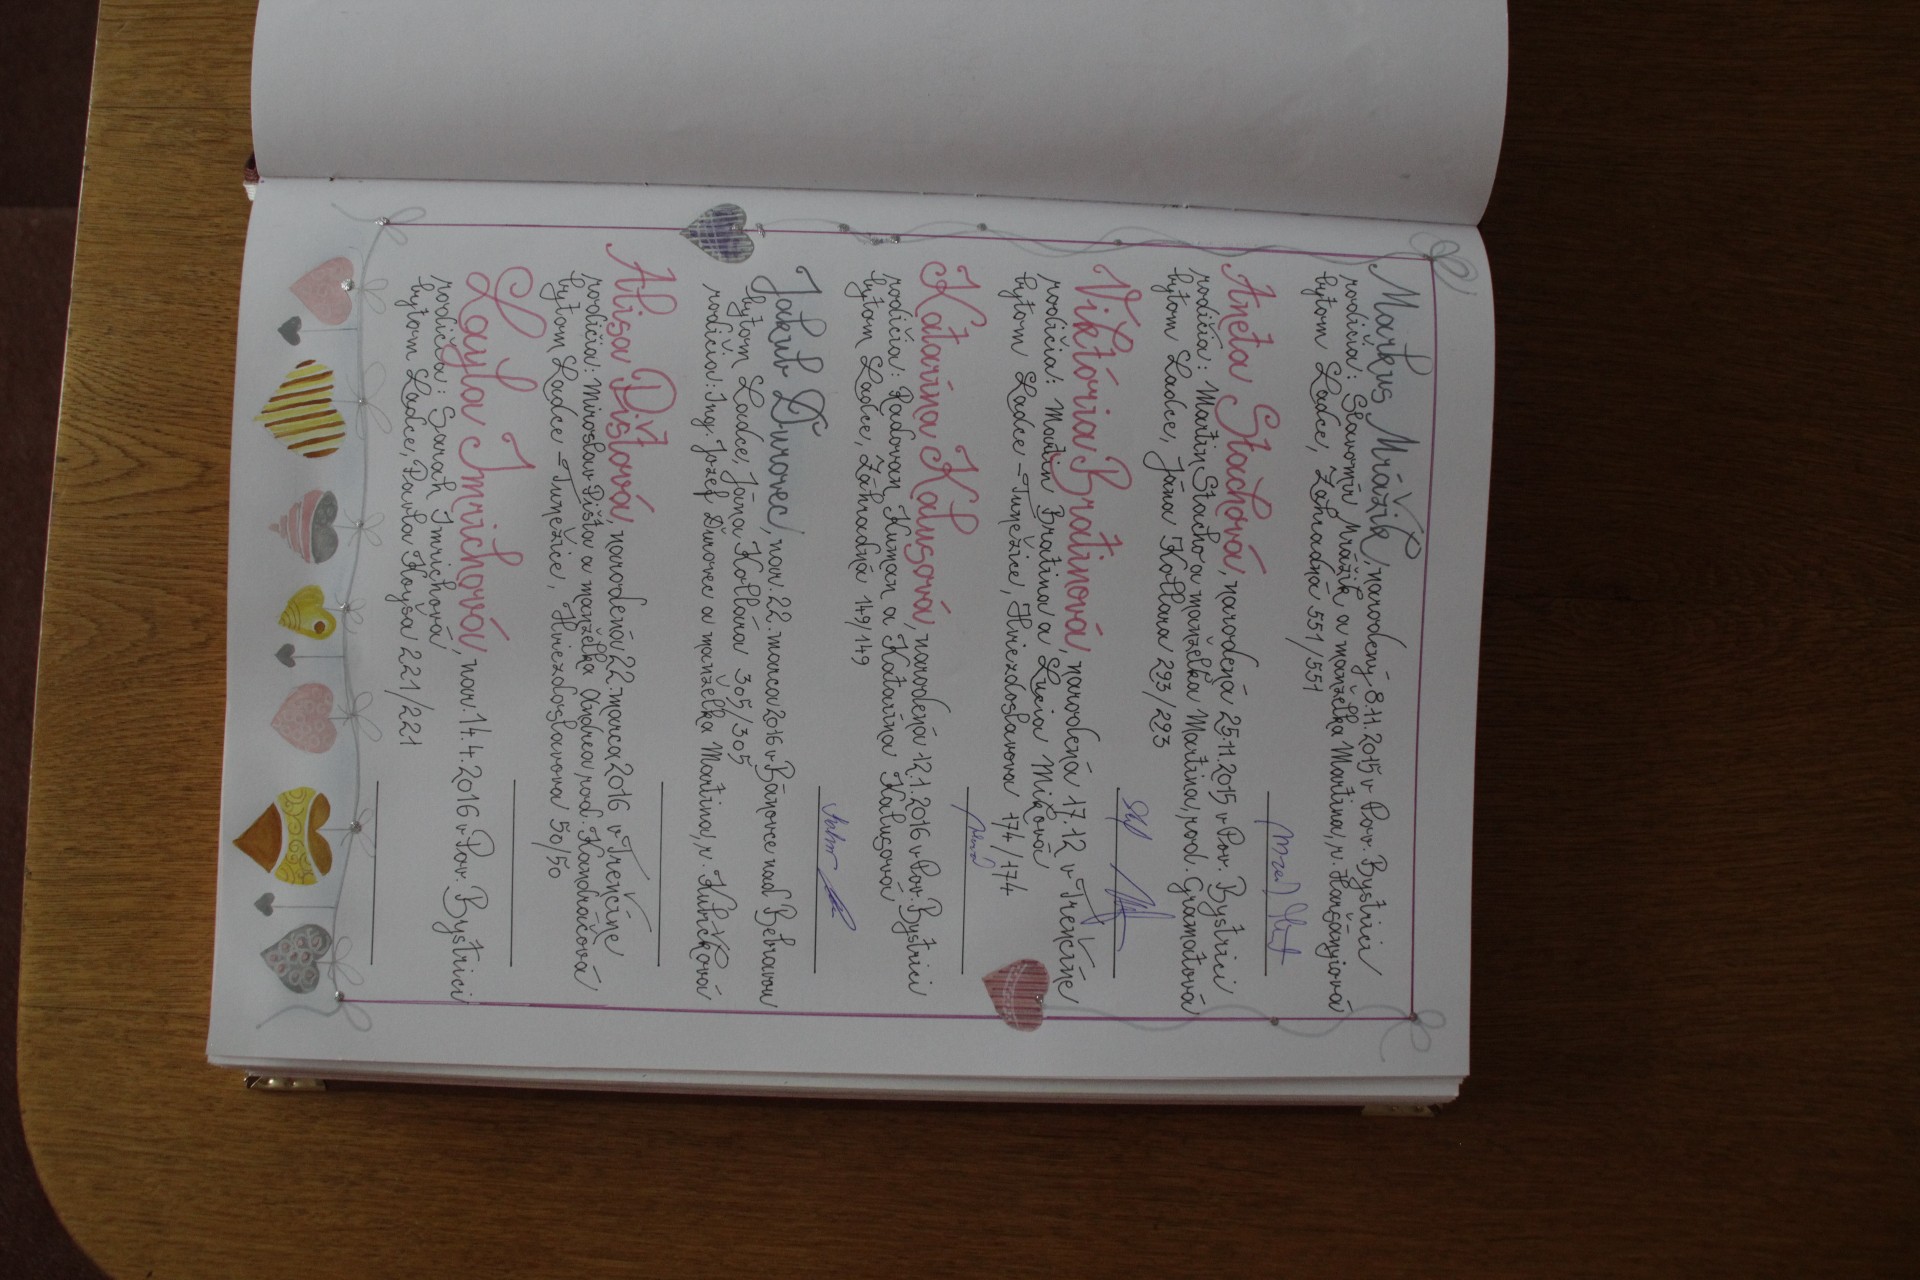 Markus Mrážik, narodený 8.11.2015 v Pov. Bystrici
rodičia: Slavomír Mrážik a manželka Martina, r. Haršányiová
bytom Ladce, Záhradná 551/551
Aneta Stachová, narodená 25.11.2015 v Pov. Bystrici
rodičia: Martin Stacho a manželka Martina, rod. Gramatová
bytom Ladce, Jána Kollára 293/293
Viktória Bratinová, narodená 17.12 v Trenčíne
rodičia: Martin Bratina a Lucia Miková
bytom Ladce - Tunežice, Hviezdoslavova 174/174
Katarína Kalusová, narodená 12.1.2016 v Pov. Bystrici
rodičia: Radovan Kuman a Katarína Kalusová
bytom Ladce, Záhradná 149/149
Jakub Ďurovec, nar. 22. marca 2016 v Bánovce nad Bebravou
bytom Ladce, Jána Kollára 305/305
rodičia: Ing. Jozef Ďurovec a manželka Martina, r. Kubičková
Alisa Dištová, narodená 22. marca 2016 v Trenčíne
rodičia: Miroslav Dišta a manželka Andrea, rod. Kandráčová
bytom Ladce - Tunežice, Hviezdoslavova 50/50
Layla Imrichová, nar. 14.4.2016 v Pov. Bystrici
rodičia: Sarah Imrichová
bytom Ladce, Pavla Koyša 221/221